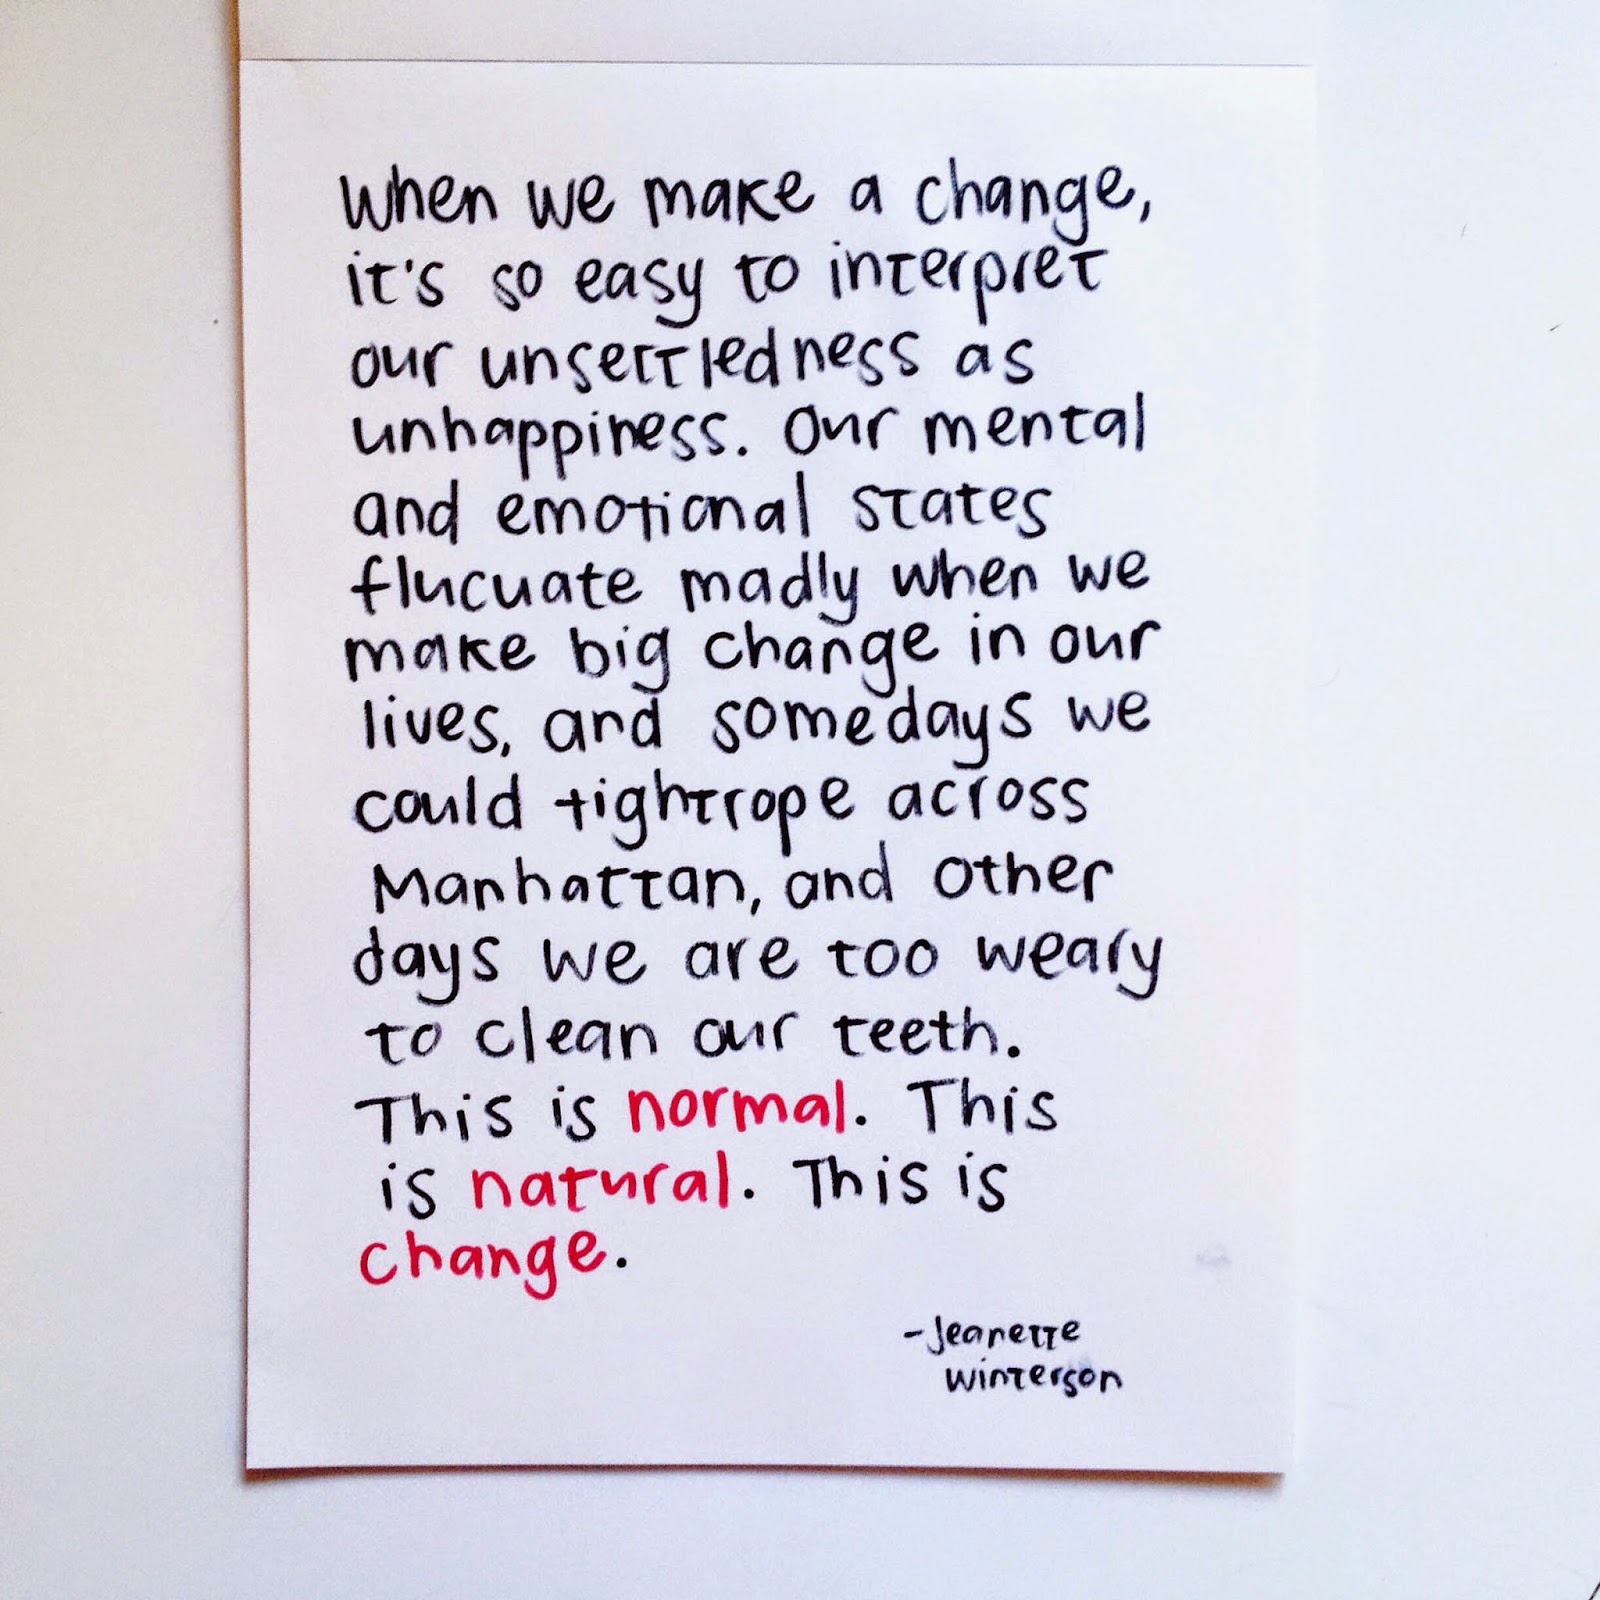 When we make a change,
it's so easy to interpret
our unsettledness as
unhappiness. Our mental
and emotional states
flucuate madly when we
make big change in our
lives, and somedays we
could tightrope across
Manhattan, and other
days we are too weary
to clean our teeth.
This is normal. This
is natural. This is
change.
-Jeanette
Winterson